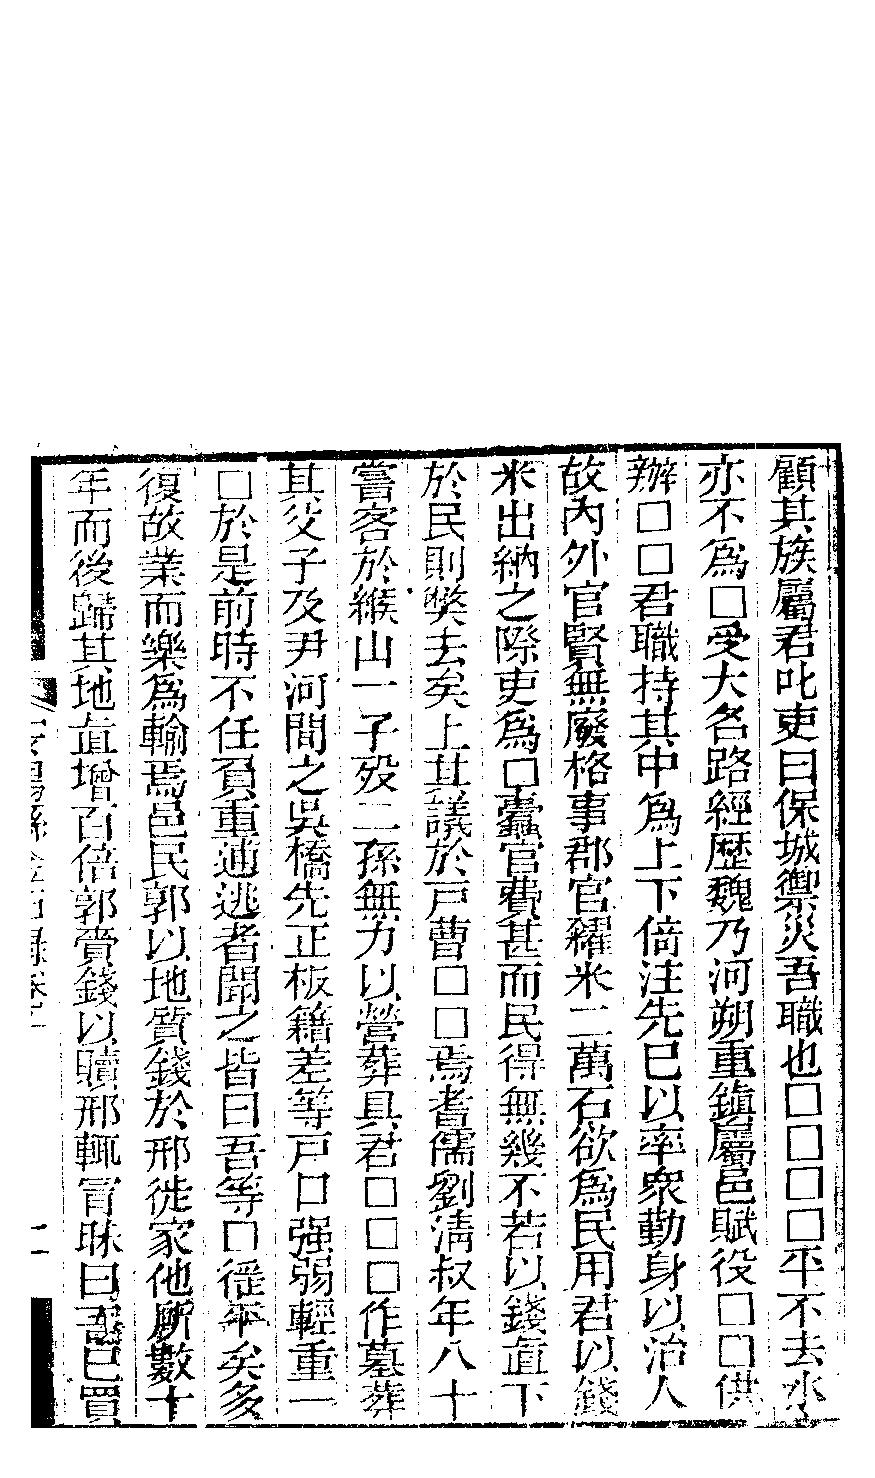 顧其族屬君叱吏曰保城禦災吾職也□□□□平不去水
亦不爲□受大名路經歷魏乃河朔重鎮屬邑賦役□□供
辦□□君職持其中爲上下倚注先已以率衆勤身以治人
故內外官賢無廢格事郡官糴米二萬石欲爲民用君以錢
米出納之際吏爲□蠹官費甚而民得無幾不若以錢直下
於民則獘去矣上其議於戸曹□□焉耆儒劉淸叔年八十
嘗客於緱山一子歿二孫無力以營葬具君□□□作墓葬
其父子及尹河間之吳橋先正板籍差等戸口强弱輕重一
□於是前時不任負重逋逃者聞之皆曰吾等□徭平矣多
復故業而樂爲輸焉邑民郭以地質錢於邢徙家他所數十
年而後歸其地直增百倍郭賫錢以贖邢輒冒昧曰吾已買
安陽縣金石錄卷十
二